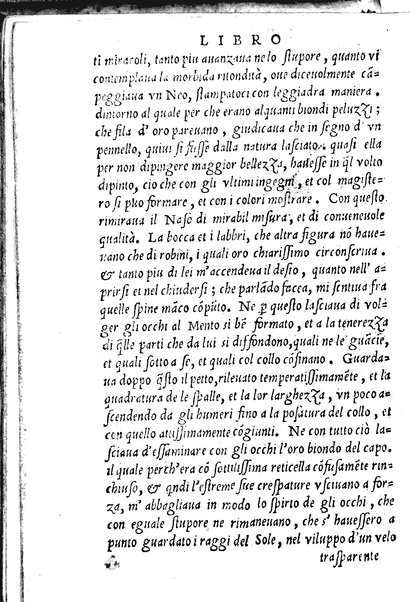 LIBRO
ti miracoli, tanto piu auanzaua ne lo stupore, quanto vi
contemplaua la morbida ritondità, oue diceuolmente cā-
peggiaua vn Neo, stampatoci con leggiadra maniera.
dintorno al quale per che erano alquanti biondi peluzzi;
che fila d'oro pareuano, giudicaua che in segno d'vn
pennello, quiui si fusse dalla natura lasciato. quasi ella
per non dipingere maggior bellezza, hauesse in q̃l volto
dipinto, cio che con gli vltimi ingegni, et col magiste-
ro si puo formare, et con i colori mostrare. Con questo
rimiraua il Naso di mirabil misura, et di conueneuole
qualità. La bocca et i labbri, che altra figura nō haue-
uano che di robini, i quali oro chiarissimo circonscriua.
& tanto piu di lei m'accendeua il desio, quanto nell'a-
prirsi et nel chiudersi; che parlādo facea, mi sentiua fra
quelle spine māco cōpūto. Ne p̱ questo lasciaua di vol-
ger gli occhi al Mento si bē formato, et a la tenerezza
di q̃lle parti che da lui si diffondono, quali ne le guācie,
et quali sotto a se, et quali col collo cōfinano. Guarda-
ua doppo q̃sto il petto, rileuato temperatissimamēte, et la
quadratura de le spalle, et la lor larghezza, vn poco a-
scendendo da gli humeri fino a la posatura del collo, et
con quello attissimamente cōgiunti. Ne con tutto ciò la-
sciaua d'essaminare con gli occhi l'oro biondo del capo.
il quale perch'era cō sottilissima reticella cōfusamēte rin-
chiuso, & q̃ndi l'estreme sue crespature vsciuano a for-
za, m'abbagliaua in modo lo spirto de gli occhi, che
con eguale stupore ne rimaneuano, che s'hauessero a
punto guardato i raggi del Sole, nel viluppo d'un velo
trasparente